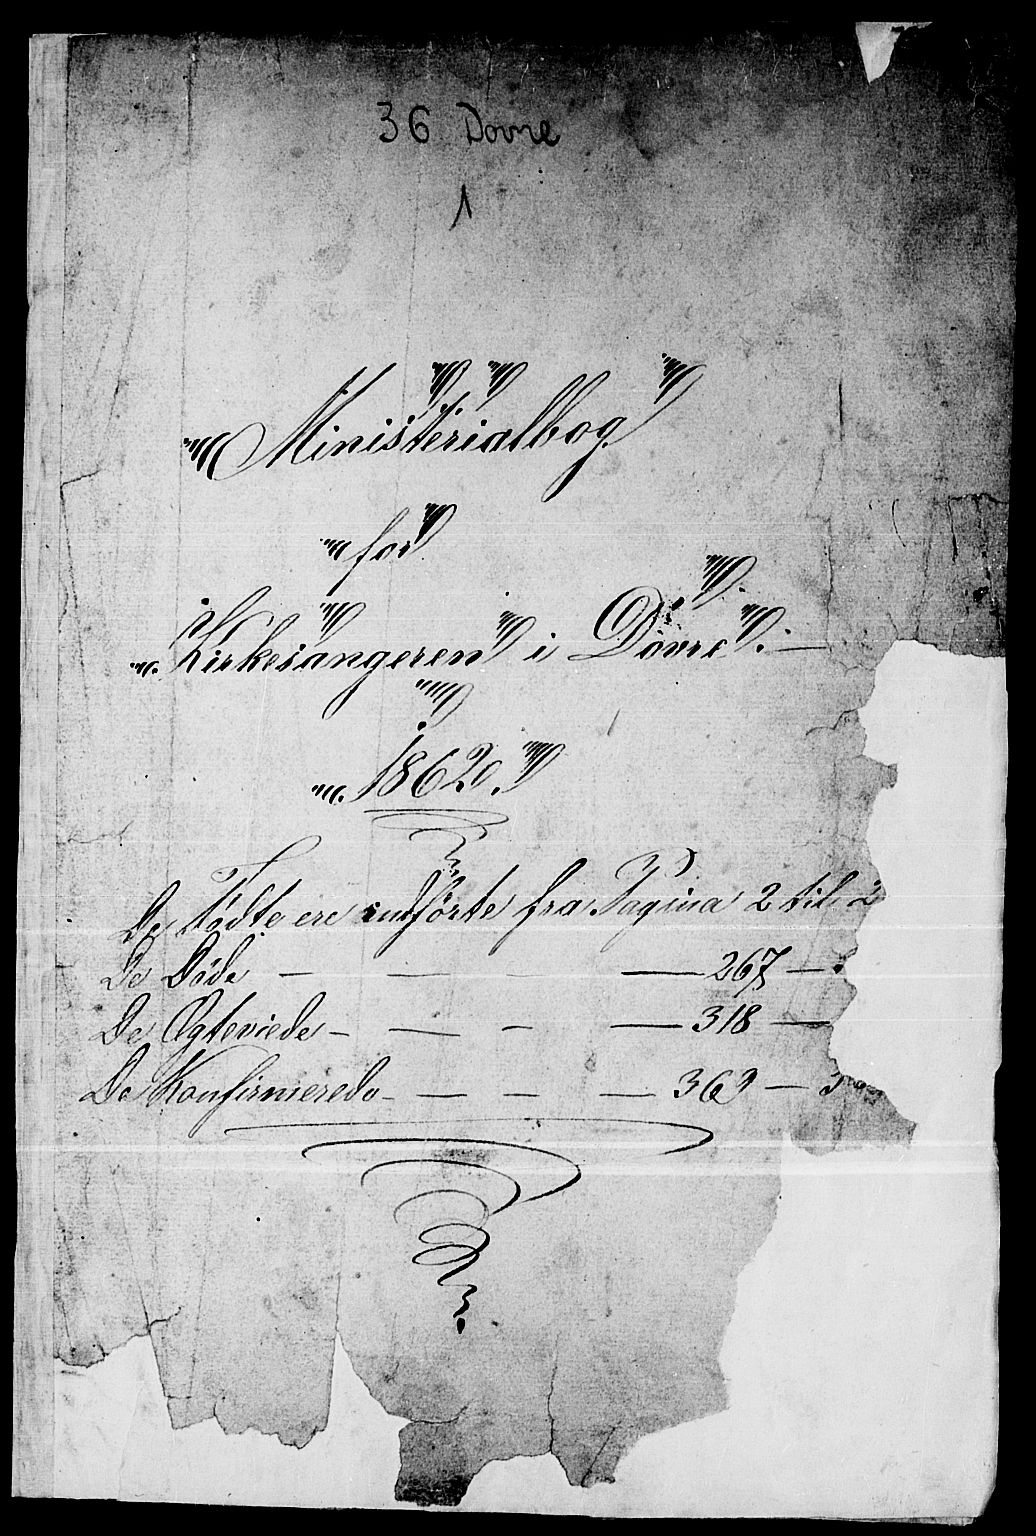 36 Dovre
1
Ministerialbog
for
Kirkesangeren i Dovre. —
1862.
De Fødte ere indførte fra Pagina 2 til 2
De Døde — — — — 267 —
De Ægteviede — — — — 318 —
De Konfirmerede — — — — 363 — 3